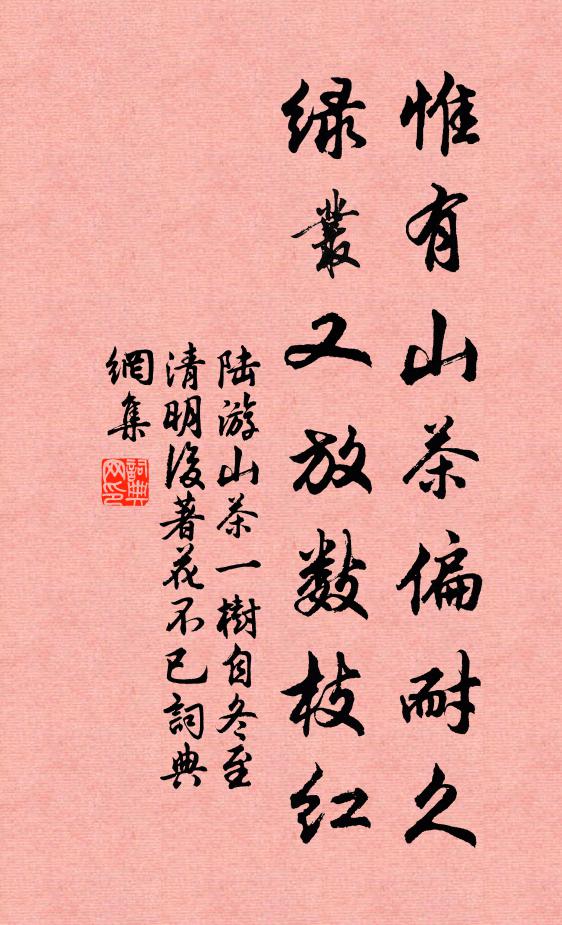 惟有山茶偏耐久
绿叢又放數枝红
陆游山茶一樹自冬至
清明後著花不已詞典
網集
詞典网印